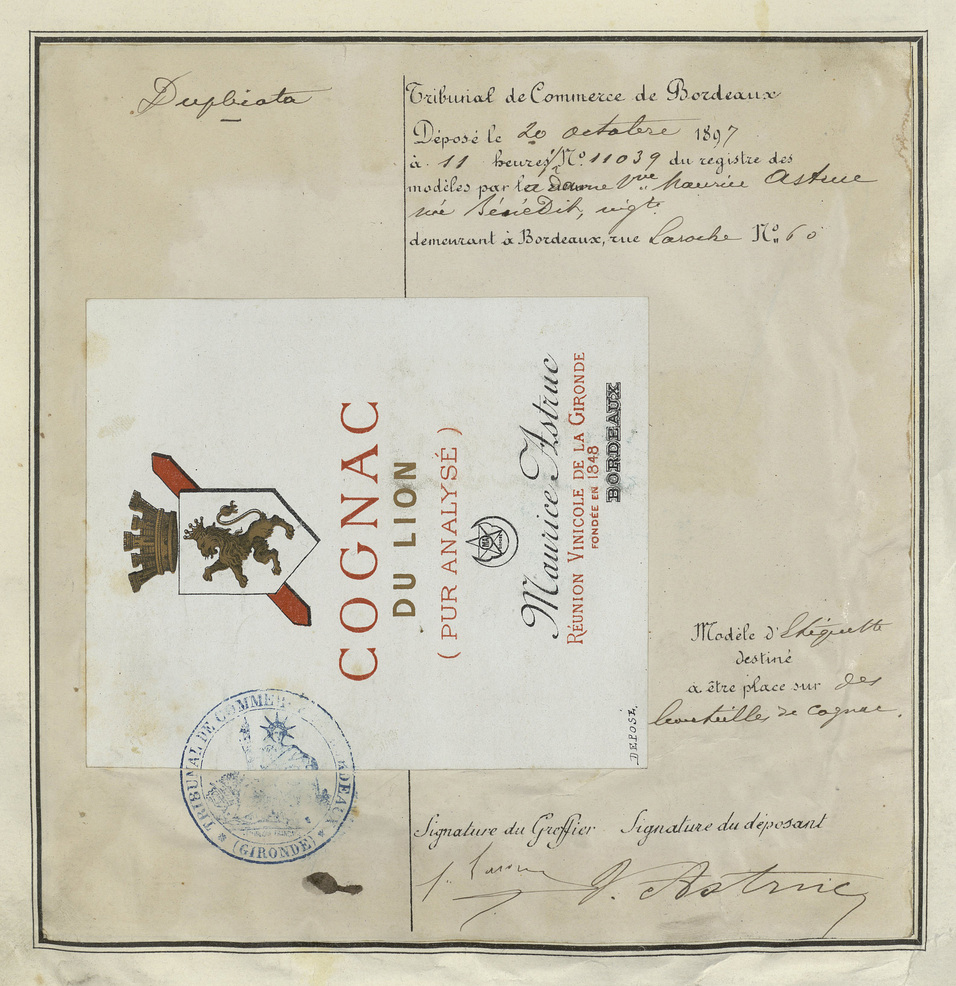 Duplicata
Tribunal de Commerce de Bordeaux
Déposé le 20 octobre 1897
à 11 heures, No. 11039 du registre des
modèles par la dame Vve Maurice Astruc
née Bénédit, nigte
demeurant à Bordeaux, rue Laroche No. 60
COGNAC
DU LION
(PUR ANALYSÉ)
Maurice Astruc
RÉUNION VINICOLE DE LA GIRONDE
FONDÉE EN 1848
BORDEAUX
DEPOSÉ
Modèle d'Etiquette
destiné
à être place sur des
bouteilles de cognac.
TRIBUNAL DE COMMERCE BORDEAUX
(GIRONDE)
Signature du Greffier Signature du déposant
V. Astruc